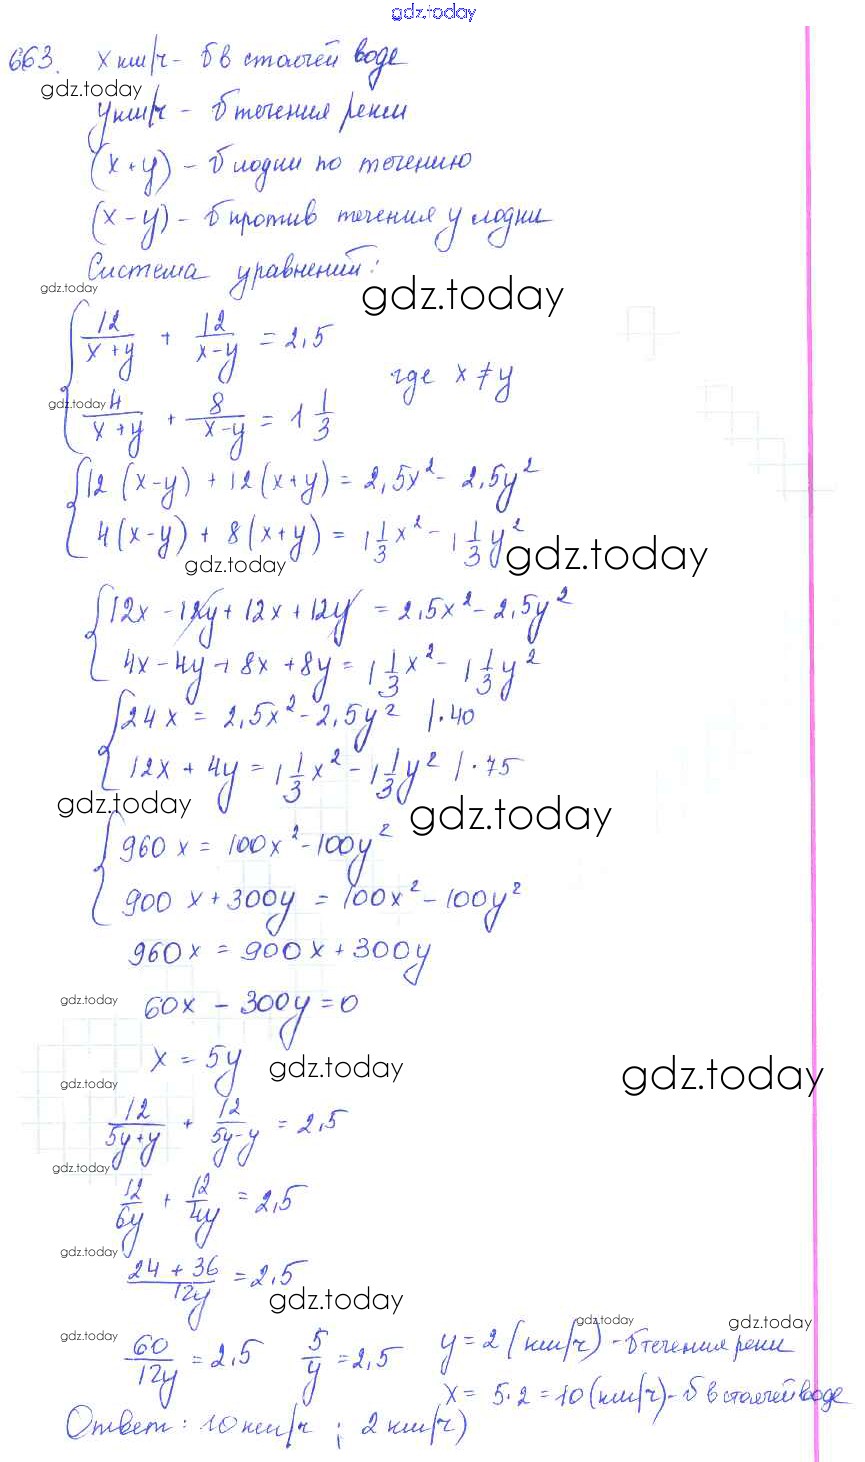 gdz.today
663. x км/ч - б в стоячей воде
gdz.today
y км/ч - б течения реки
(x+y) - б лодки по течению
(x-y) - б против течения у лодки
Система уравнений:
gdz.today
gdz.today
12/(x+y) + 12/(x-y) = 2,5
где x ≠ y
gdz.today
4/(x+y) + 8/(x-y) = 1 1/3
12(x-y) + 12(x+y) = 2,5x² - 2,5y²
4(x-y) + 8(x+y) = 1 1/3 x² - 1 1/3 y²
gdz.today
gdz.today
12x - 12y + 12x + 12y = 2,5x² - 2,5y²
4x - 4y + 8x + 8y = 1 1/3 x² - 1 1/3 y²
24x = 2,5x² - 2,5y² |·40
12x + 4y = 1 1/3 x² - 1 1/3 y² |·75
gdz.today
gdz.today
960x = 100x² - 100y²
900x + 300y = 100x² - 100y²
960x = 900x + 300y
gdz.today
60x - 300y = 0
x = 5y
gdz.today
gdz.today
gdz.today
12/(5y+y) + 12/(5y-y) = 2,5
gdz.today
12/6y + 12/4y = 2,5
gdz.today
(24 + 36)/12y = 2,5
gdz.today
gdz.today
gdz.today
gdz.today
60/12y = 2,5 5/y = 2,5 y = 2 (км/ч) - б течения реки
x = 5·2 = 10 (км/ч) - б в стоячей воде
Ответ: 10 км/ч ; 2 км/ч)